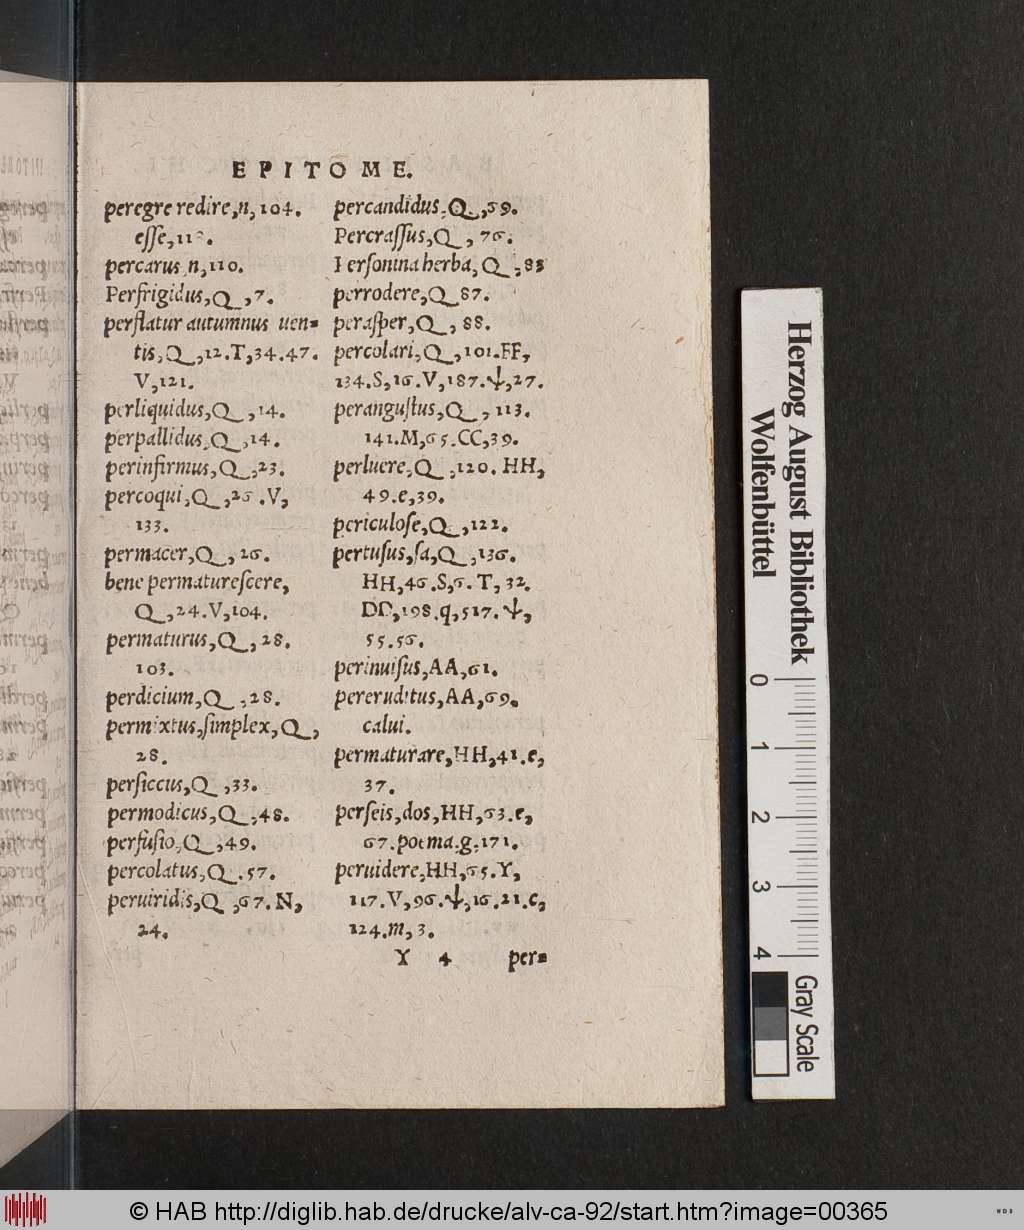 EPITOME.
peregre redire,n,104.
esse,11
percarus,n,110.
Perfrigidus,Q,7.
perflatur autumnus uen=
tis,Q,12.T,34.47.
V,121.
perliquidus,Q,14.
perpallidus,Q,14.
perinfirmus,Q,23.
percoqui,Q,26.V,
133.
permacer,Q,26.
bene permaturescere,
Q,24.V,104.
permaturus,Q,28.
103.
perdicium,Q,28.
permixtus,simplex,Q,
28.
persiccus,Q,33.
permodicus,Q,48.
perfusio,Q,49.
percolatus,Q.57.
peruiridis,Q,67.N,
24.
percandidus,Q,69.
Percrassus,Q,76.
Personina herba,Q,85
perrodere,Q 87.
perasper,Q,88.
percolari,Q,101.FF,
134.S,16.V,187.ψ,27.
perangustus,Q,113.
141.M,65.CC,39.
perluere,Q,120.HH,
49.e,39.
periculose,Q,122.
pertusus,sa,Q,136.
HH,46.S,6.T,32.
DD,198.q,517.ψ,
55.56.
perinuisus,AA,61.
pereruditus,AA,69.
calui.
permaturare,HH,41.e,
37.
perseis,dos,HH,63.e,
67.poema.g,171.
peruidere,HH,65.Y,
117.V,96.ψ,16.21.c,
124.m,3.
Y 4 per=
Herzog August Bibliothek
Wolfenbüttel
0 1 2 3 4
Gray Scale
© HAB http://diglib.hab.de/drucke/alv-ca-92/start.htm?image=00365
WDB